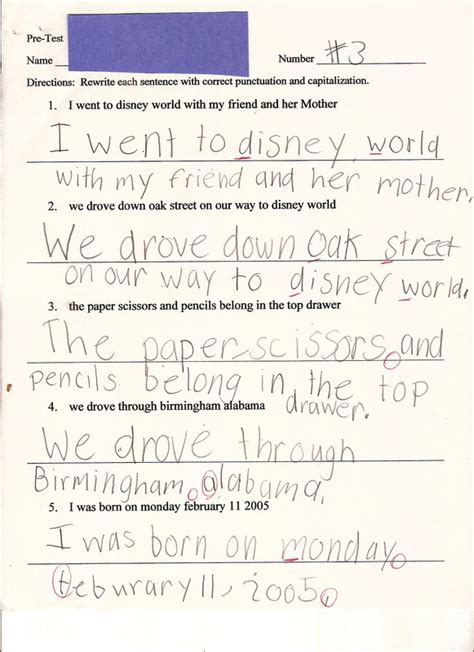 Pre-Test
Name
Number #3
Directions: Rewrite each sentence with correct punctuation and capitalization.
1. I went to disney world with my friend and her Mother
I went to disney world
with my friend and her mother.
2. we drove down oak street on our way to disney world
We drove down Oak street
on our way to disney world.
3. the paper scissors and pencils belong in the top drawer
The paper, scissors, and
pencils belong in the top
drawer.
4. we drove through birmingham alabama
We drove through
Birmingham, alabama.
5. I was born on monday february 11 2005
I was born on monday,
feburary 11, 2005.